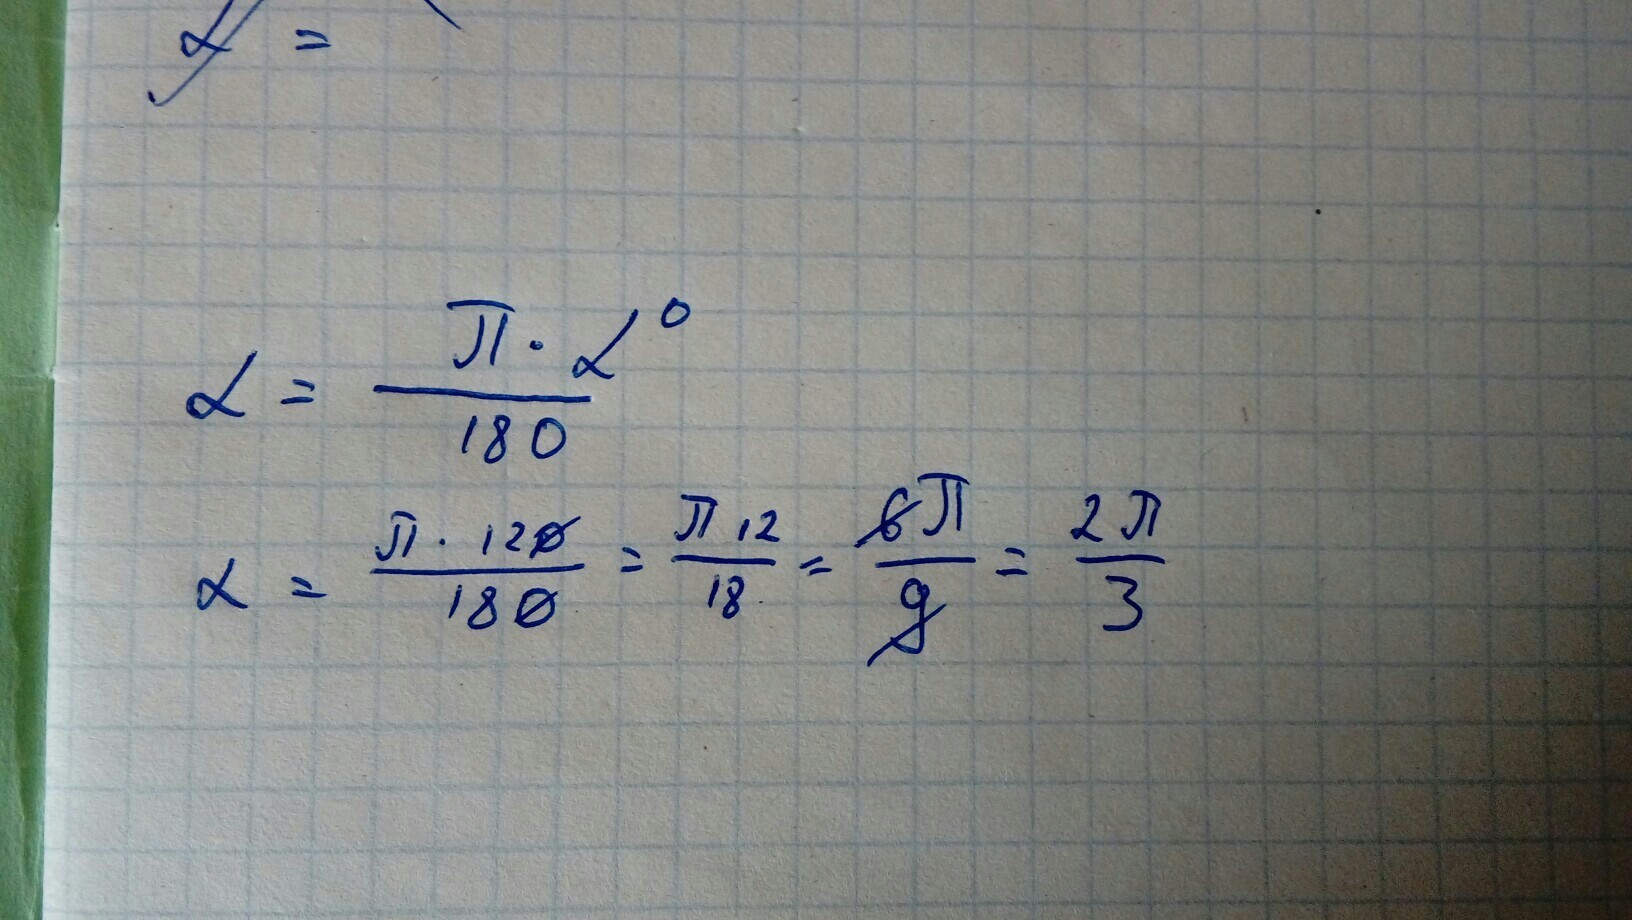 α =
α = π · α⁰ / 180
α = π · 120 / 180 = π 12 / 18 = 6π / 9 = 2π / 3